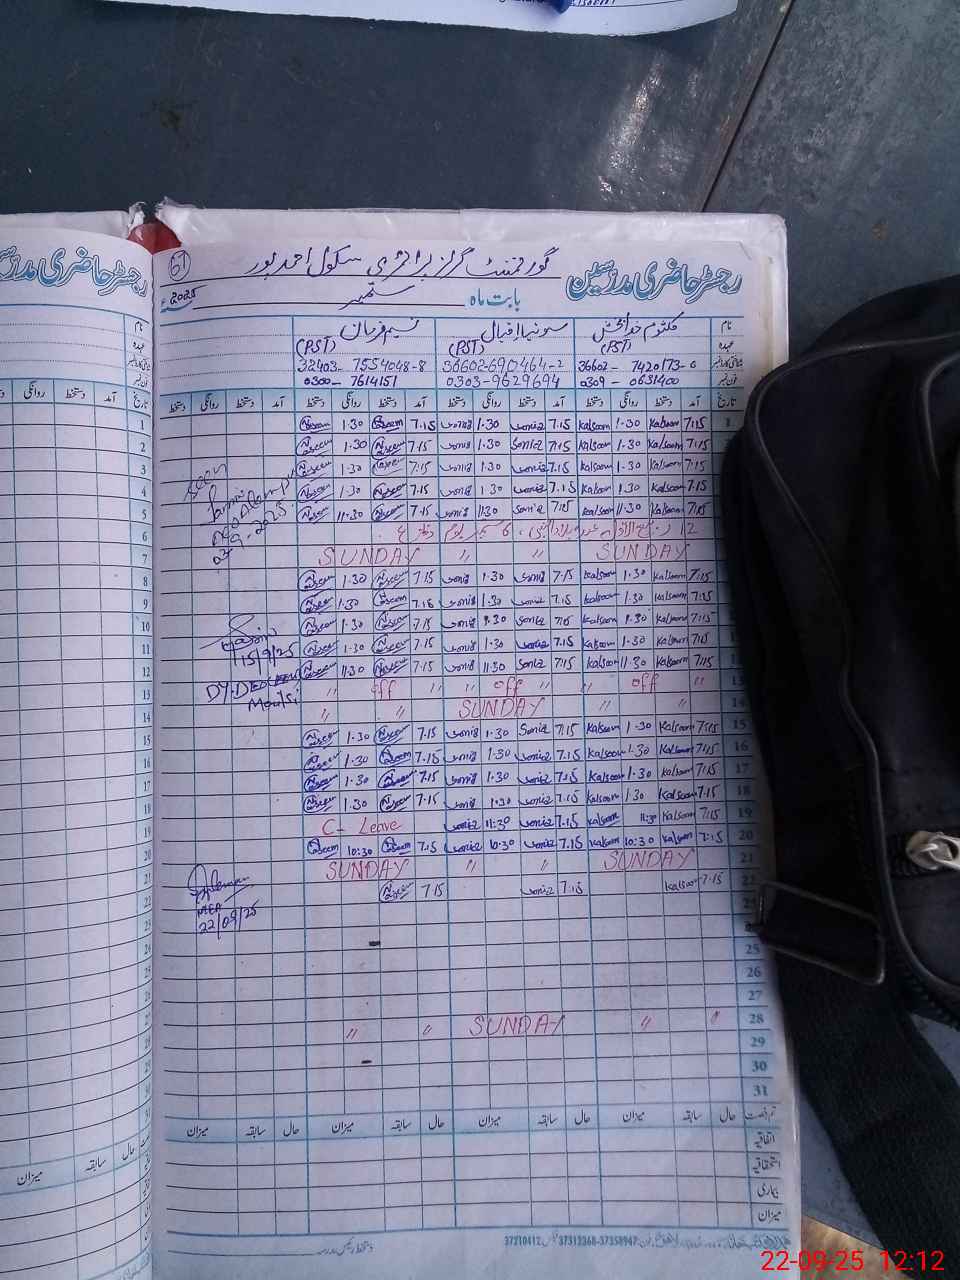 رجسٹر حاضری مدرسین
گورنمنٹ گرلز پرائمری سکول احمد پور
61
بابت ماہ ستمبر 2025
نام کلثوم خدا بخش سونیا اقبال نسیم فرمان
عہدہ (PST) (PST) (PST)
شناختی کارڈ نمبر 36602-7420173-0 36602-690464-2 32403-7554048-8
فون نمبر 0309-0631400 0303-9629694 0300-7614151
تاریخ آمد دستخط روانگی دستخط آمد دستخط روانگی دستخط آمد دستخط روانگی دستخط آمد دستخط روانگی دستخط
1 7:15 Kalsoom 1.30 Kalsoom 7.15 Sonia 1.30 Sonia 7.15 Naseem 1.30 Naseem
2 7:15 Kalsoom 1.30 Kalsoom 7.15 Sonia 1.30 Sonia 7.15 Naseem 1.30 Naseem
3 7:15 Kalsoom 1.30 Kalsoom 7.15 Sonia 1.30 Sonia 7.15 Naseem 1.30 Naseem
4 7:15 Kalsoom 1.30 Kalsoom 7.15 Sonia 1.30 Sonia 7.15 Naseem 1.30 Naseem
5 7:15 Kalsoom 11.30 Kalsoom 7.15 Sonia 11.30 Sonia 7.15 Naseem 11.30 Naseem
6 12 ربیع الاول
7 SUNDAY " " SUNDAY
8 7:15 Kalsoom 1.30 Kalsoom 7.15 Sonia 1.30 Sonia 7.15 Naseem 1.30 Naseem
9 7:15 Kalsoom 1.30 Kalsoom 7.15 Sonia 1.30 Sonia 7.15 Naseem 1.30 Naseem
10 7:15 Kalsoom 1.30 Kalsoom 7.15 Sonia 1.30 Sonia 7.15 Naseem 1.30 Naseem
11 7:15 Kalsoom 1.30 Kalsoom 7.15 Sonia 1.30 Sonia 7.15 Naseem 1.30 Naseem
12 7:15 Kalsoom 11.30 Kalsoom 7.15 Sonia 11.30 Sonia 7.15 Naseem 11.30 Naseem
13 " off " " off " " off "
14 " " SUNDAY " "
15 7:15 Kalsoom 1.30 Kalsoom 7.15 Sonia 1.30 Sonia 7.15 Naseem 1.30 Naseem
16 7:15 Kalsoom 1.30 Kalsoom 7.15 Sonia 1.30 Sonia 7.15 Naseem 1.30 Naseem
17 7:15 Kalsoom 1.30 Kalsoom 7.15 Sonia 1.30 Sonia 7.15 Naseem 1.30 Naseem
18 7:15 Kalsoom 1.30 Kalsoom 7.15 Sonia 1.30 Sonia 7.15 Naseem 1.30 Naseem
19 7:15 Kalsoom 11:30 Kalsoom 7.15 Sonia 11:30 Sonia C- Leave
20 7:15 Kalsoom 10:30 Kalsoom 7.15 Sonia 10:30 Sonia 7.15 Naseem 10:30 Naseem
21 SUNDAY " " SUNDAY
22 7:15 Kalsoom 7.15 Sonia 7.15 Naseem
25
26
27
28 " " SUNDAY " "
29
30
31
Seen
15/9/25
DY.DEO
22/09/25
تم رخصت حال سابقہ میزان حال سابقہ میزان حال سابقہ میزان حال سابقہ میزان
اتفاقیہ
استحقاقیہ
بیماری
میزان
دستخط رئیس مدرسہ
37310412 37312368-37358947
رجسٹر حاضری مدرسین
نام
عہدہ
تاریخ آمد دستخط روانگی دستخط
1
2
3
4
5
6
7
8
9
10
11
12
13
14
15
16
17
18
19
20
21
22
حال سابقہ میزان
22-09-25 12:12